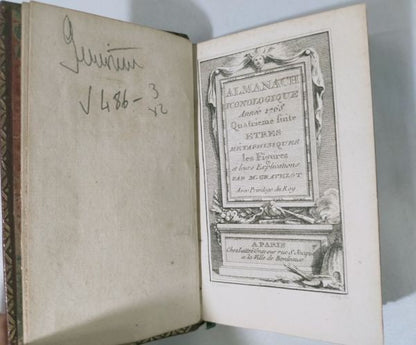 √ 486 - 3
ALMANACH
ICONOLOGIQUE
Année 1768
Quatrieme suite
ETRES
METAPHISIQUES
les Figures
et leurs Explications
PAR M. GRAVELOT
Avec Privilege du Roy
A PARIS
Chez Lattré Graveur rue S. Jacques
a la Ville de Bordeaux